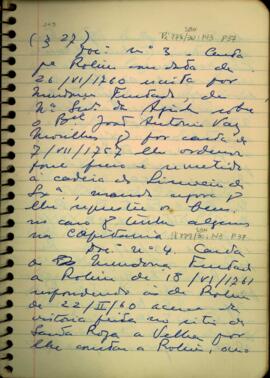 (§ 27)
Doc. nº 3 - Carta
pª Rolim com data de
26/VII/1760 escrita por
Mendonça Furtado de
Nª Srª da Ajuda sobre
o Bel João Antonio Vaz
Morilhas q por carta de
7/VII/1757 lhe ordenou
fosse preso e remetido
à cadeia do Limoeiro de
Lxª, manda agora q
lhe sequestre os bens
no caso q tenha alguns
na Capitania
Doc. nº 4. Carta
a Mendonça Furtado
a Rolim de 18/VI/1761
respondendo à de Rolim
de 22/II/60 acerca da
vistoria feita no sitio de
Santa Roza a Velha por
lhe constar a Rolim,